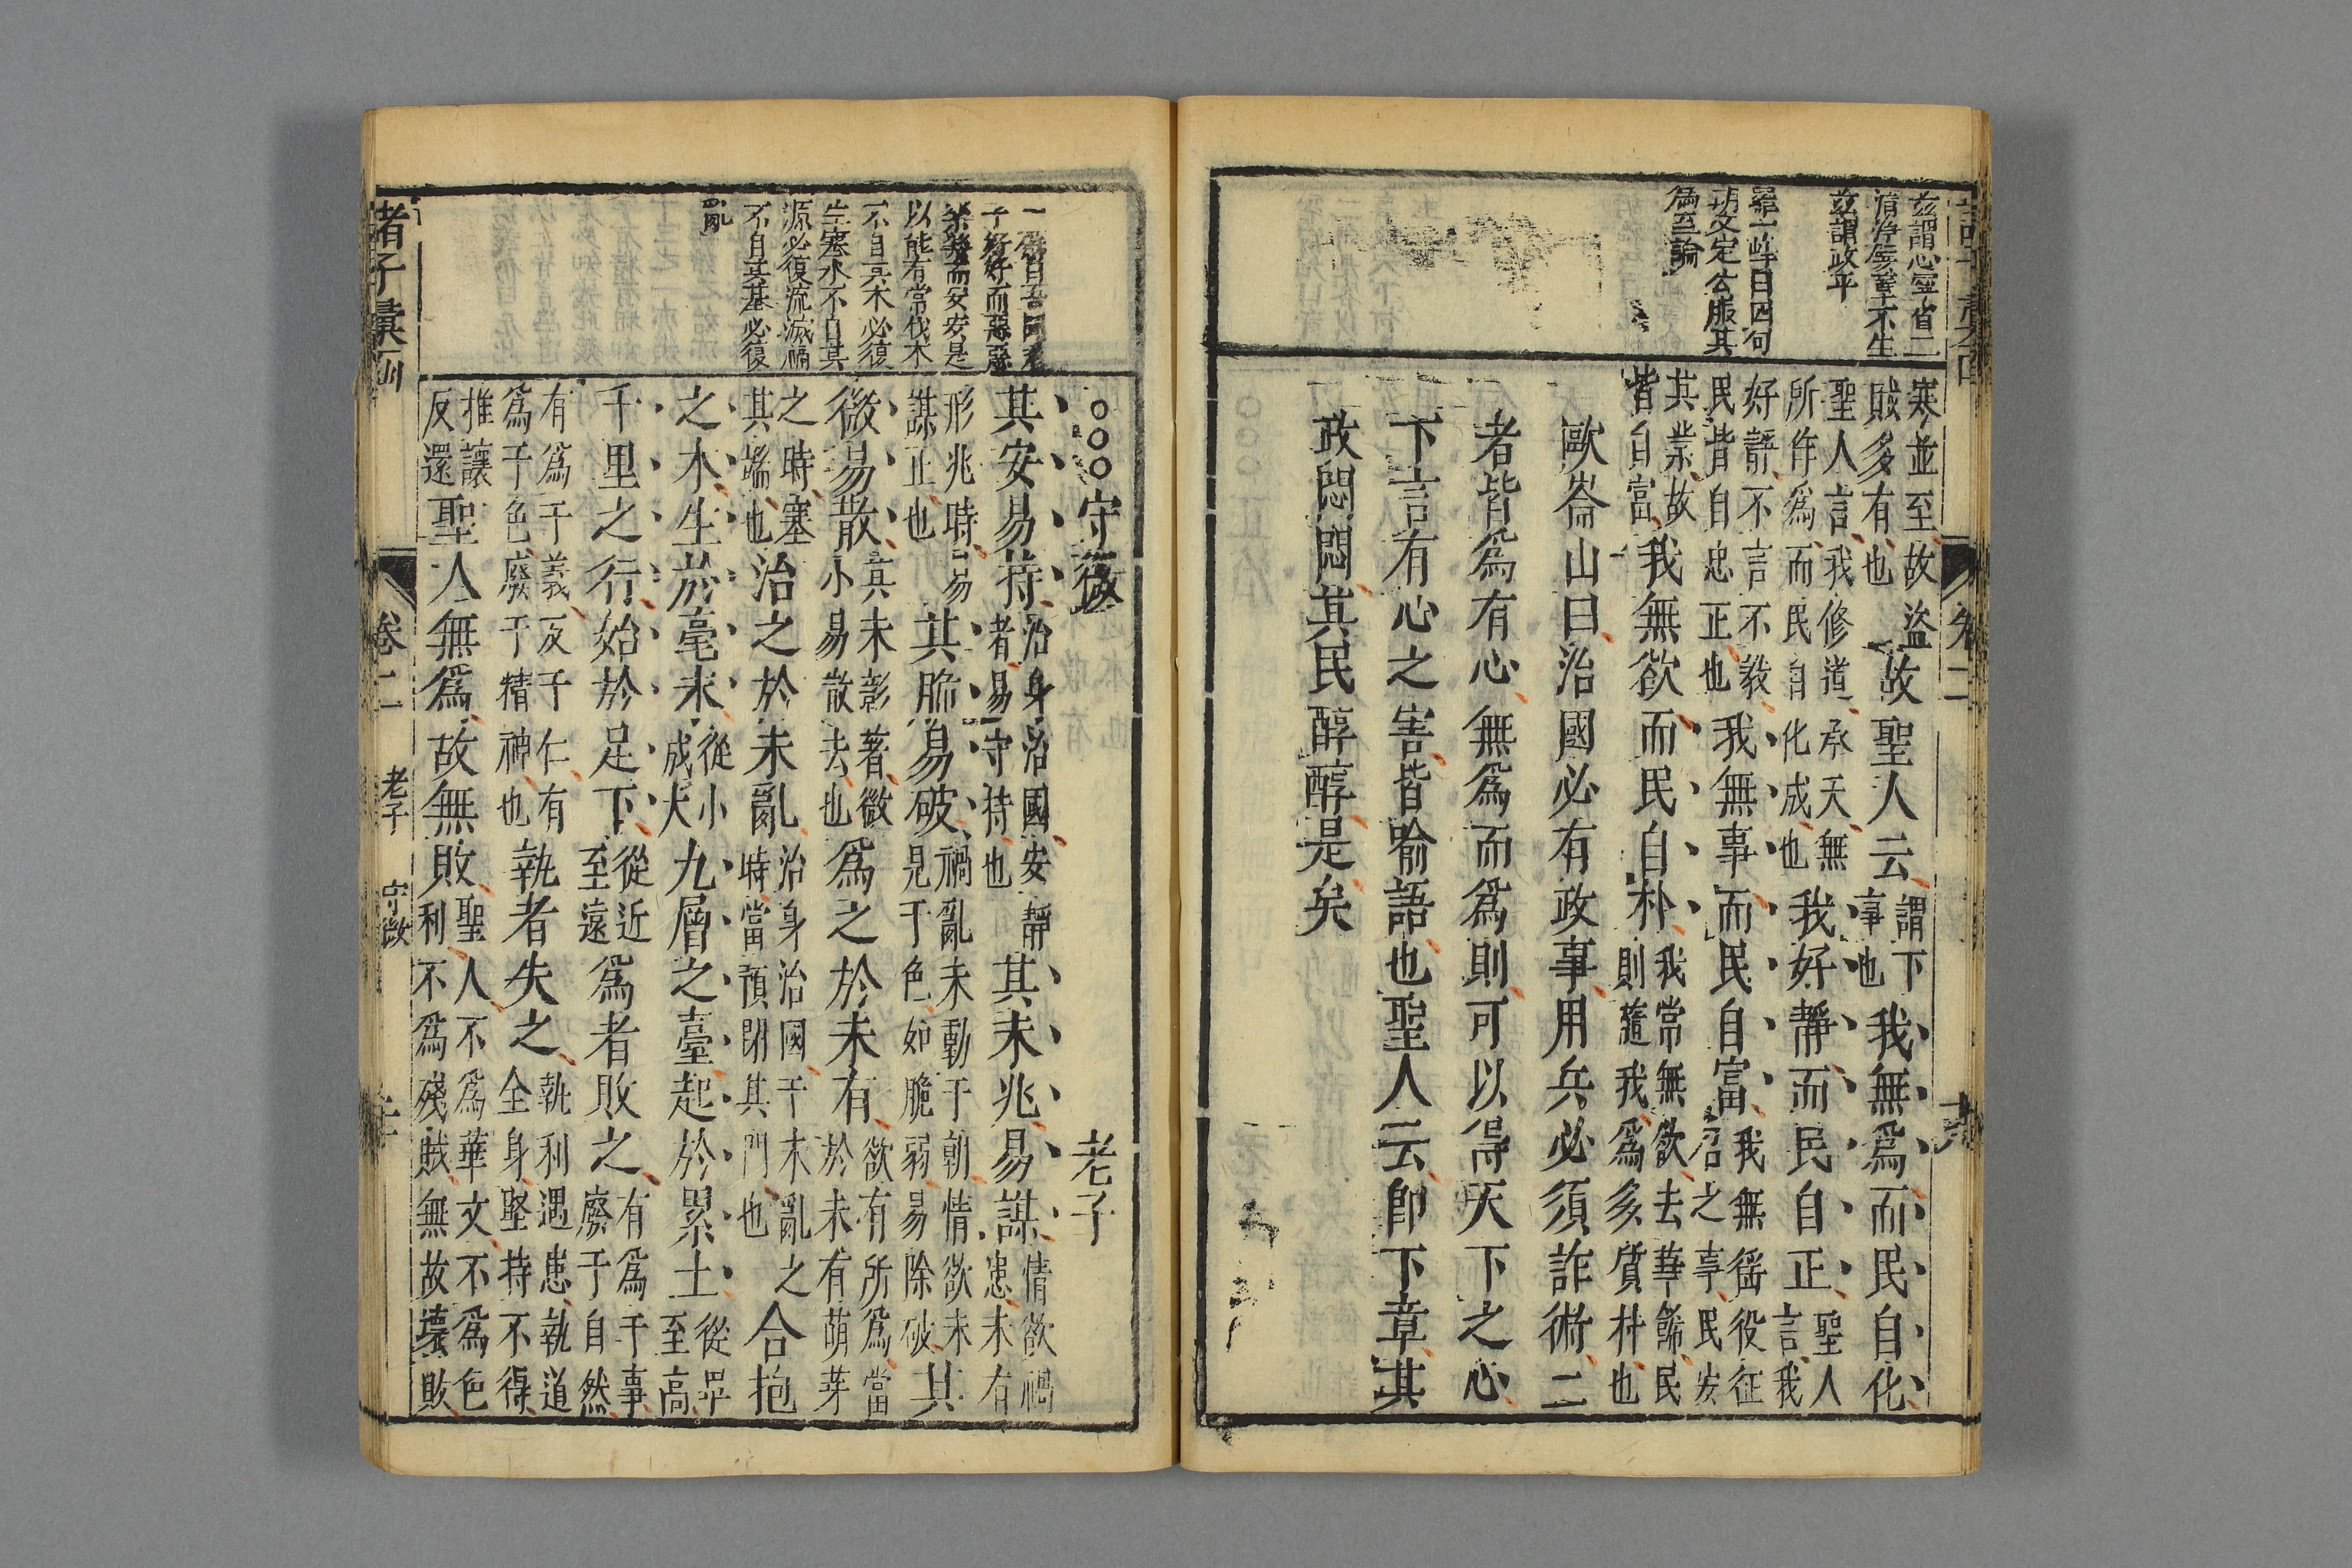 寒並至故盜
賊多有也
故聖人云
謂下
事也
我無為而民自化
聖人言我修道承天無
所作為而民自化成也
我好靜而民自正
聖人
言我
好靜不言不教
民皆自忠正也
我無事而民自富
我無徭役征
召之事民安
其業故
皆自富
我無欲而民自朴
我常無欲去華飾民
則隨我為多質朴也
歐崙山曰治國必有政事用兵必須詐術二
者皆為有心無為而為則可以得天下之心
下言有心之害皆喻語也聖人云即下章其
政悶悶其民醇醇是矣
茲謂心寧省二
清淨屬
不生
茲謂政平
羅一峰曰四句
胡文定公服其
為至論
○○○守微
老子
其安易持
治身治國安靜
者易守持也
其未兆易謀
情欲禍
患未有
形兆時易
謀止也
其脆易破
禍亂未動于朝情欲未
見于色如脆弱易除破
其
微易散
其未彰著微
小易散去也
為之於未有
欲有所為當
於未有萌芽
之時塞
其端也
治之於未亂
治身治國于未亂之
時當預閉其門也
合抱
之木生於毫末
從小
成大
九層之臺起於累土
從卑
至高
千里之行始於足下
從近
至遠
為者敗之
有為于事
廢于自然
有為于義反于仁有
為于色廢于精神也
執者失之
執利遇患執道
全身堅持不得
推讓
反還
聖人無為故無敗
聖人不為華文不為色
利不為殘賊無故壞敗
子好好而惡惡
樂
而安安是
以能有常伐木
不自其本必復
生塞水不自其
源必復流滅禍
不自其基必復
亂
諸子彙函
卷二
老子
守微
卷二